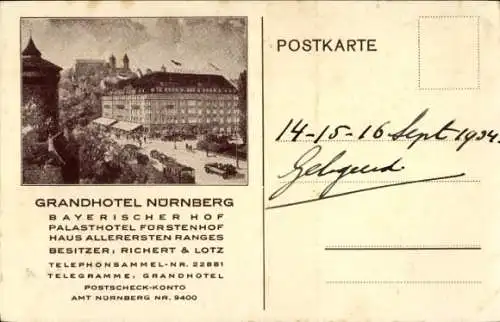 GRANDHOTEL NÜRNBERG
BAYERISCHER HOF
PALASTHOTEL FÜRSTENHOF
HAUS ALLERERSTEN RANGES
BESITZER, RICHERT & LOTZ
TELEPHONSAMMEL-NR. 22881
TELEGRAMME, GRANDHOTEL
POSTSCHECK-KONTO
AMT NÜRNBERG NR. 9400
POSTKARTE
14-15-16 Sept. 1934.